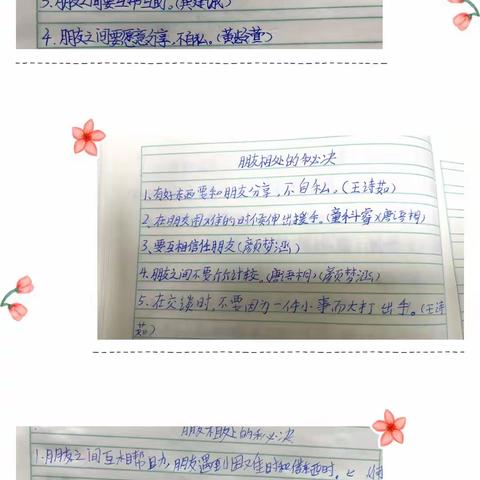 3.朋友之间要互帮互助。(黄建诚)
4.朋友之间要愿意分享,不自私。(黄龄萱)
朋友相处的秘决
1.有好东西要和朋友分享,不自私。(王诗茹)
2.在朋友困难的时候伸出援手。(童科睿)(唐语桐)
3.要互相信任朋友(颜梦涵)
4.朋友之间不要斤斤计较。(唐语桐)(颜梦涵)
5.在交谈时,不要因为一件小事而大打出手。(王诗
茹)
朋友相处的秘决
1.朋友之间互相帮助,朋友遇到困难时和借东西时。